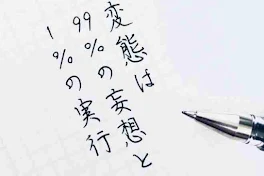 変態は
99%の妄想と
1%の実行